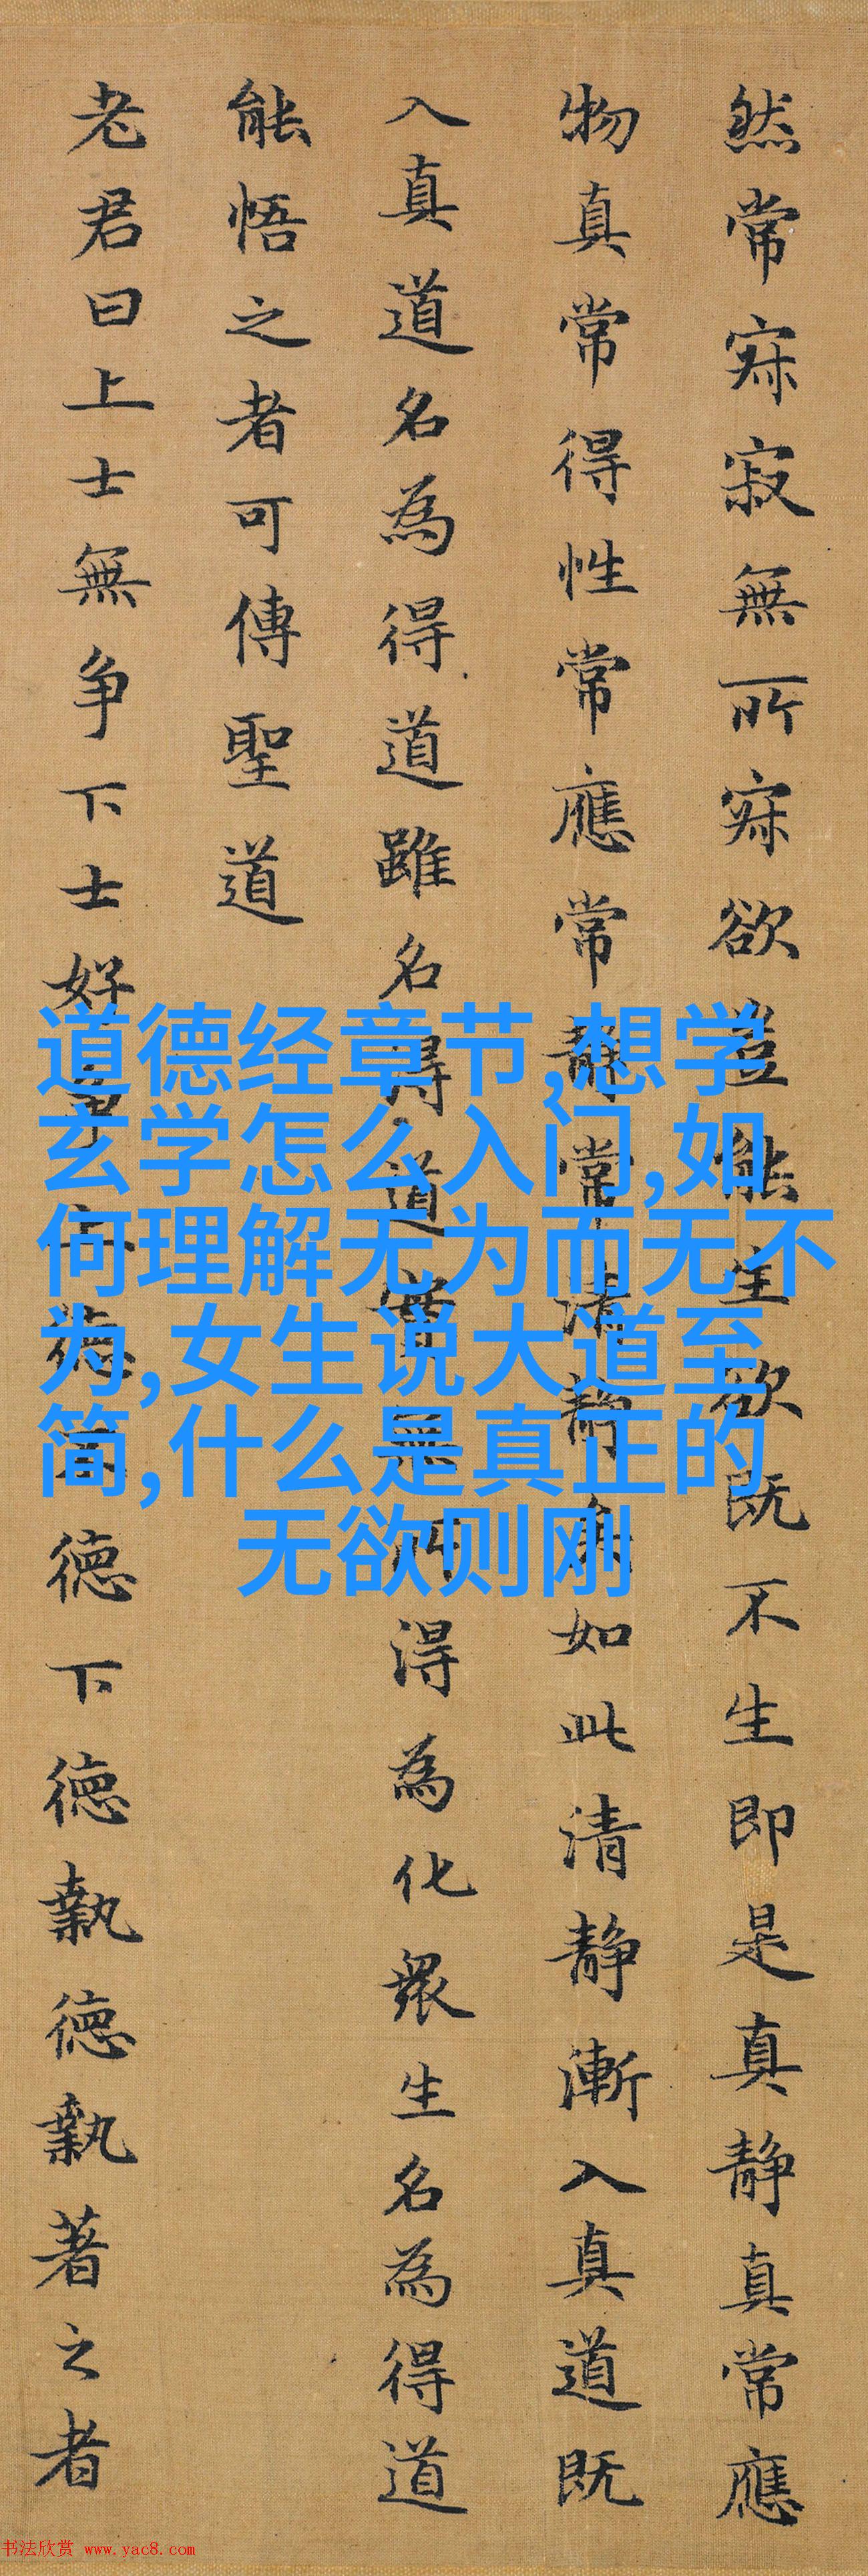 然常寂寂無所寂欲豈能生欲既不生即是真静真常應
物真常得性常應常静常清静矣如此清静漸入真道既
入真道名為得道雖名得道實無所得為化眾生名為得道
能悟之者可傳聖道
老君曰上士無争下士好争上德不德下德執德執著之者
道德经章节,想学
玄学怎么入门,如
何理解无为而无不
为,女生说大道至
简,什么是真正的
无欲则刚
书法欣赏 www.yac8.com